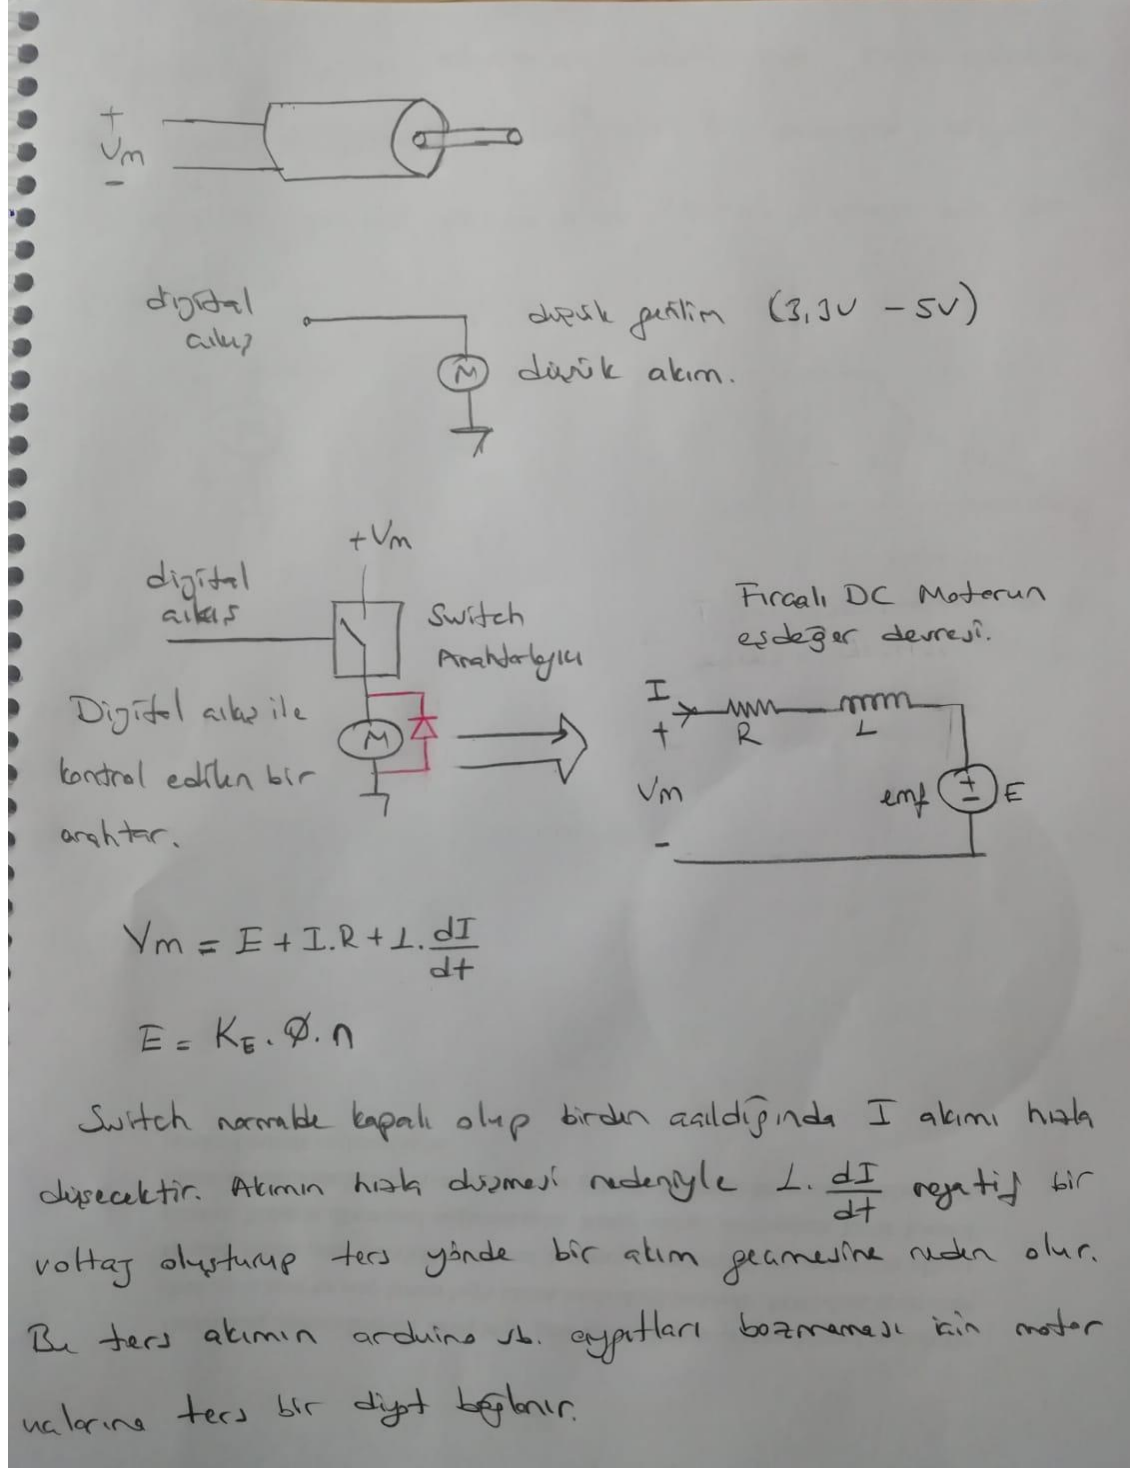 +
Vm
-
digital
çıkış
düşük gerilim (3,3V - 5V)
M
düşük akım.
+Vm
digital
çıkış
Switch
Anahtarlayıcı
Fırçalı DC Motorun
eşdeğer devresi.
Dijital çıkış ile
kontrol edilen bir
anahtar.
M
I
+
R
L
Vm
emf
+
-
E
-
Vm = E + I.R + L. dI/dt
E = KE . Ø . n
Switch normalde kapalı olup birden açıldığında I akımı hızla
düşecektir. Akımın hızla düşmesi nedeniyle L. dI/dt negatif bir
voltaj oluşturup ters yönde bir akım geçmesine neden olur.
Bu ters akımın arduino vb. aygıtları bozmaması için motor
uçlarına ters bir diyot bağlanır.